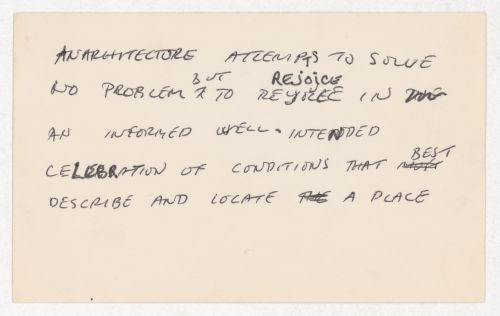 ANARCHITECTURE ATTEMPTS TO SOLVE
NO PROBLEM BUT TO REJOICE IN
AN INFORMED WELL-INTENDED
CELEBRATION OF CONDITIONS THAT BEST
DESCRIBE AND LOCATE A PLACE